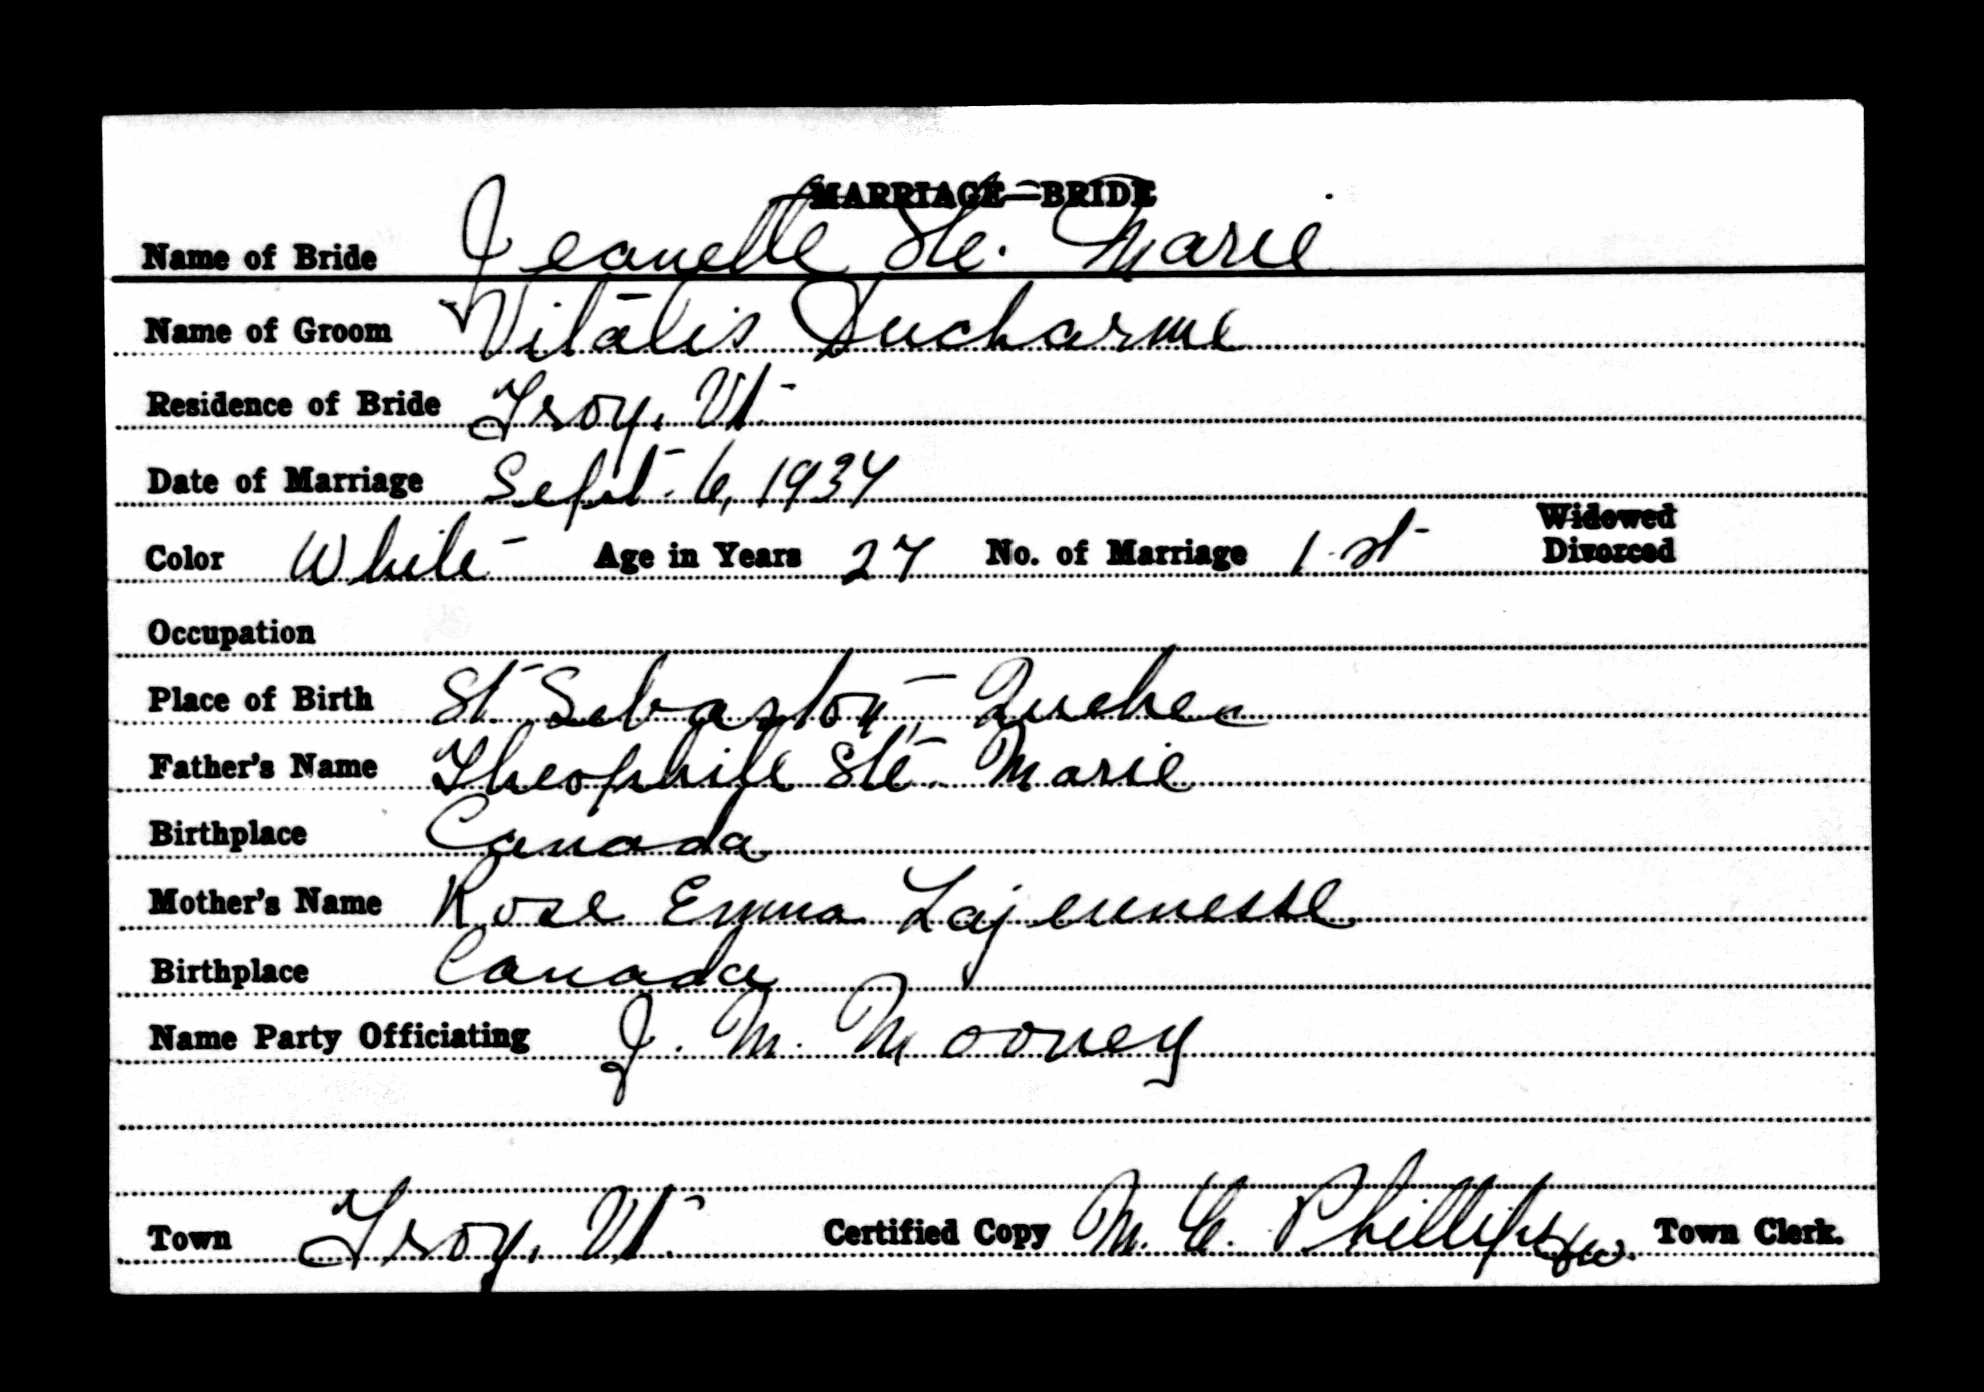 MARRIAGE—BRIDE
Name of Bride Jeanette Ste. Marie
Name of Groom Vitalis Ducharme
Residence of Bride Troy, Vt.
Date of Marriage Sept. 6, 1937
Widowed
Color White Age in Years 27 No. of Marriage 1st Divorced
Occupation
Place of Birth St Sebaston, Quebec
Father's Name Theophile Ste. Marie
Birthplace Canada
Mother's Name Rose Emma Lajeunesse
Birthplace Canada
Name Party Officiating J. M. Mooney
Town Troy, Vt. Certified Copy M. C. Phillips Town Clerk.